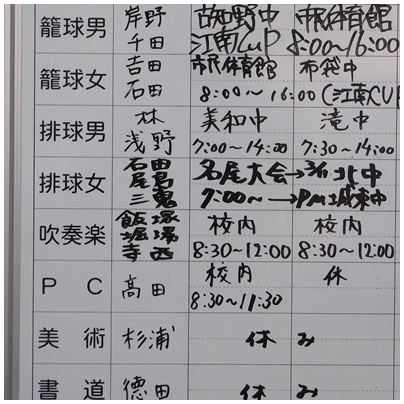 籠球男 岸野 古知野中 市民体育館
千田 江南CUP 8:00〜16:00
籠球女 吉田 市民体育館 布袋中
石田 8:00〜16:00 (江南CUP
排球男 林 美和中 滝中
浅野 7:00〜14:00 7:30〜14:00
排球女 石田 名尾大会→3/11 北中
尾島 7:00〜→PM城東中
三鬼
吹奏楽 飯塚 校内 校内
堀場 8:30〜12:00 8:30〜12:00
寺西
PC 高田 校内 休
8:30〜11:30
美術 杉浦 休み
書道 徳田 休み